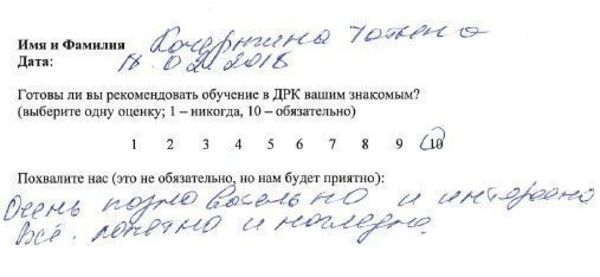 Имя и Фамилия Кочержина Татьяна
Дата: 18.02.2018
Готовы ли вы рекомендовать обучение в ДРК вашим знакомым?
(выберите одну оценку; 1 – никогда, 10 – обязательно)
1 2 3 4 5 6 7 8 9 10
Похвалите нас (это не обязательно, но нам будет приятно):
Очень познавательно и интересно
Всё понятно и наглядно.